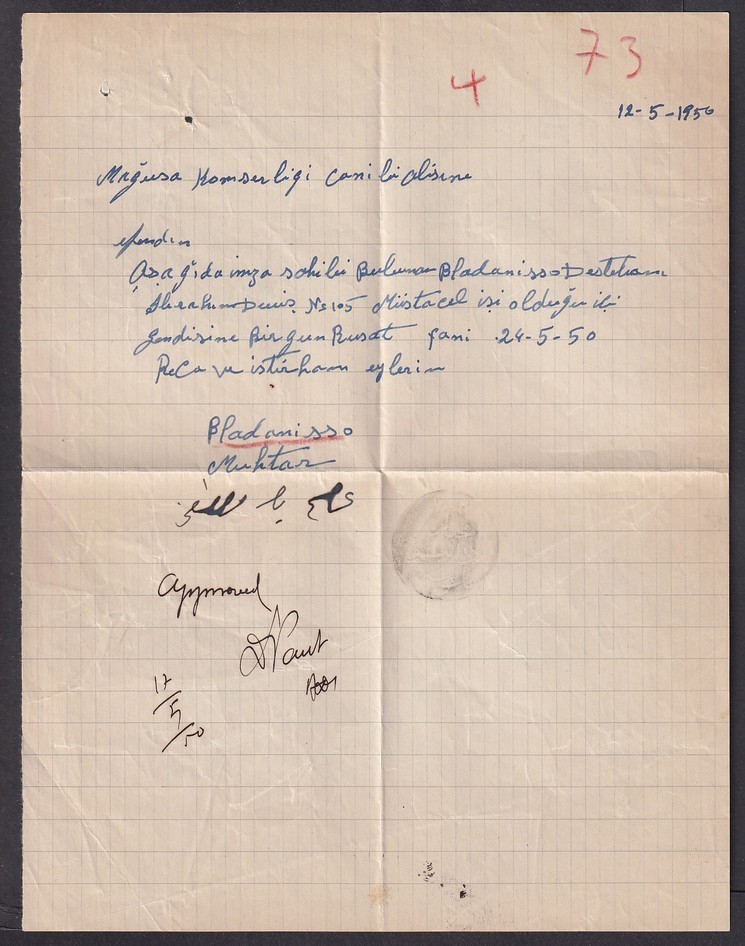 73
4
12-5-1950
Mağusa Komserligi Canibi Alisine
efendim
Aşağıda imza sahibi Bulunan Bladanisso
No 105 Müstacel işi olduğu ibi
gendisine Bir gun Rusat yani 24-5-50
Reca ve istirham eylerim
Bladanisso
Muhtar
Approved
17/5/50